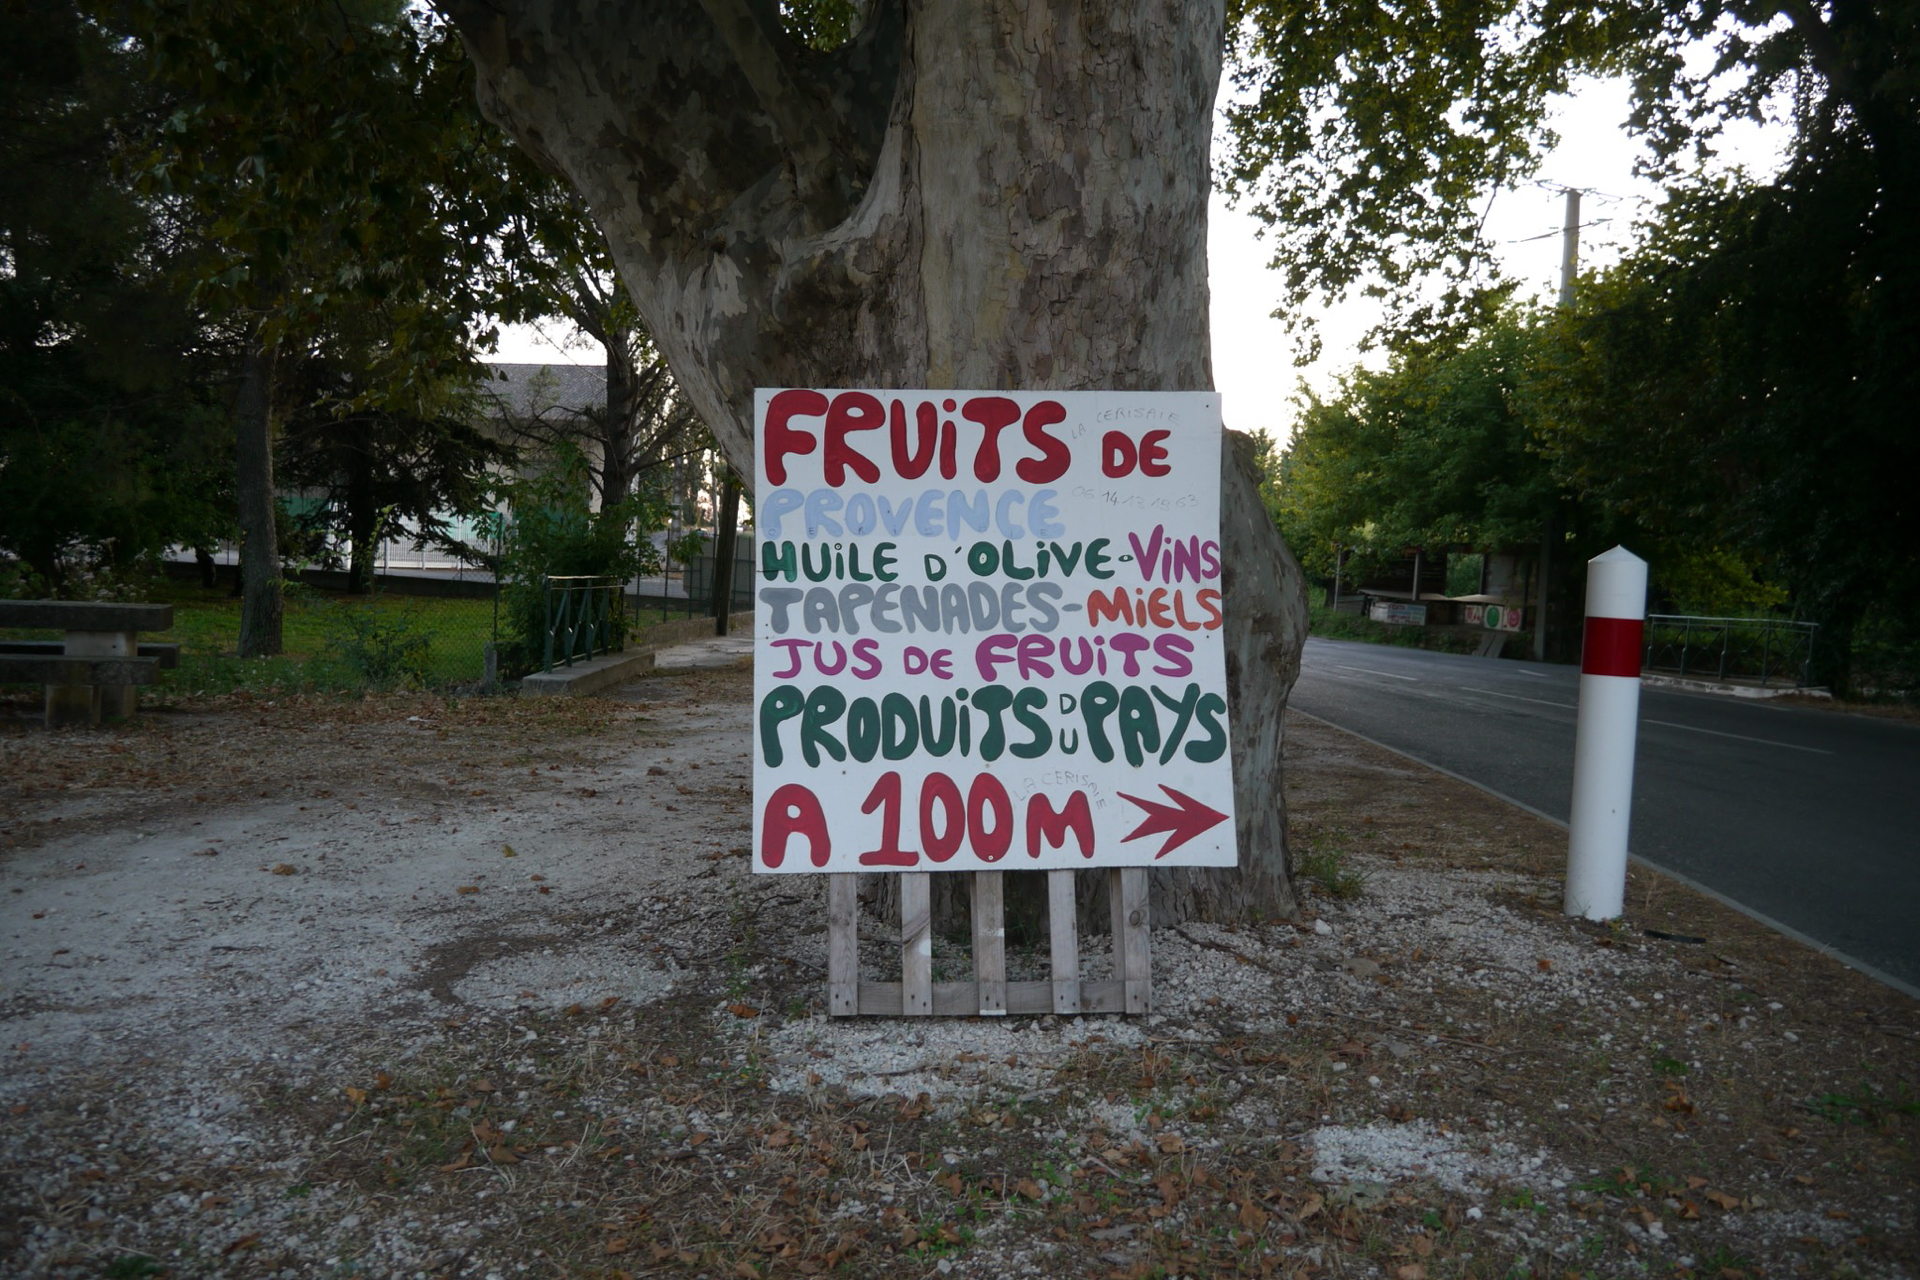 FRUiTS DE
LA CERISAIE
PROVENCE
06 14 13 19 63
HUiLE D'OLiVE-ViNS
TAPENADES-MiELS
JUS DE FRUiTS
PRODUiTS DU PAYS
LA CERISAIE
A 100M